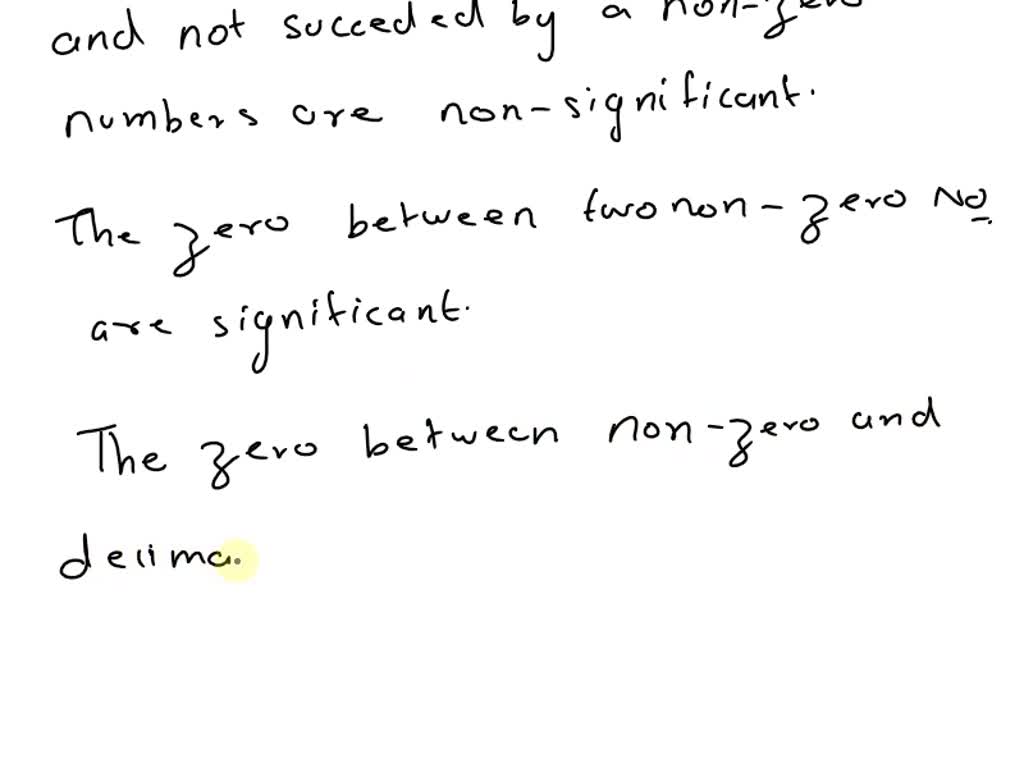 and not succeded by a non-zero
numbers are non-significant.
The zero between two non-zero No.
are significant.
The zero between non-zero and
decima